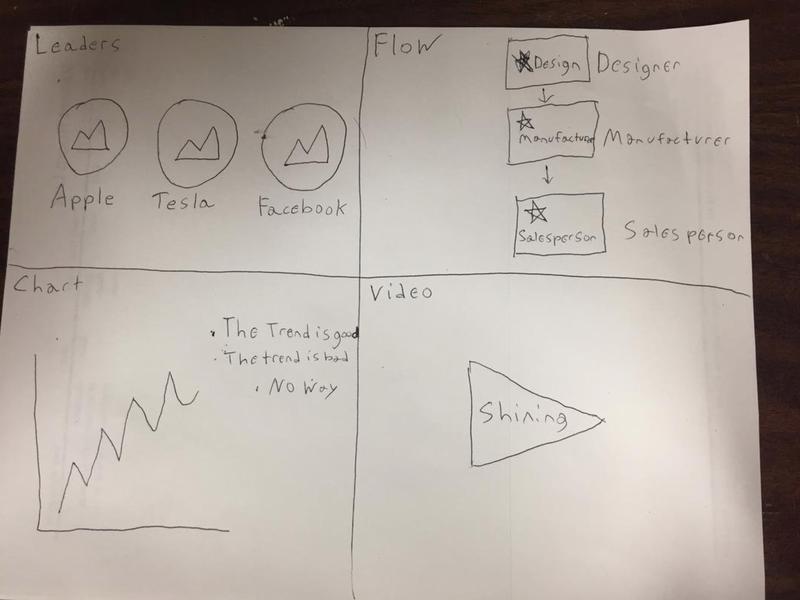 Leaders
Apple
Tesla
Facebook
Flow
Design
Designer
Manufacturer
Manufacturer
Salesperson
Salesperson
Chart
• The Trend is good
• The trend is bad
• No Way
Video
Shining